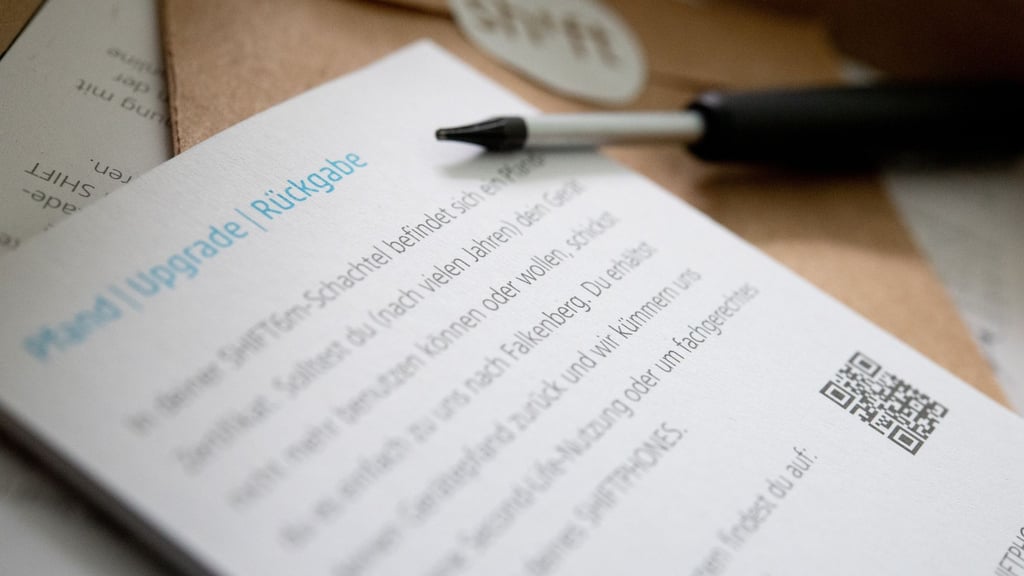 shift
ung mit
der
online
ren.
SHIFT
ade-
Pfand | Upgrade | Rückgabe
In deiner SHIFT6m-Schachtel befindet sich ein Pfand-
Zertifikat. Solltest du (nach vielen Jahren) dein Gerät
nicht mehr benutzen können oder wollen, schickst
du es einfach zu uns nach Falkenberg. Du erhältst
deinen Gerätepfand zurück und wir kümmern uns
Second-Life-Nutzung oder um fachgerechtes
deines SHIFTPHONES.
findest du auf: